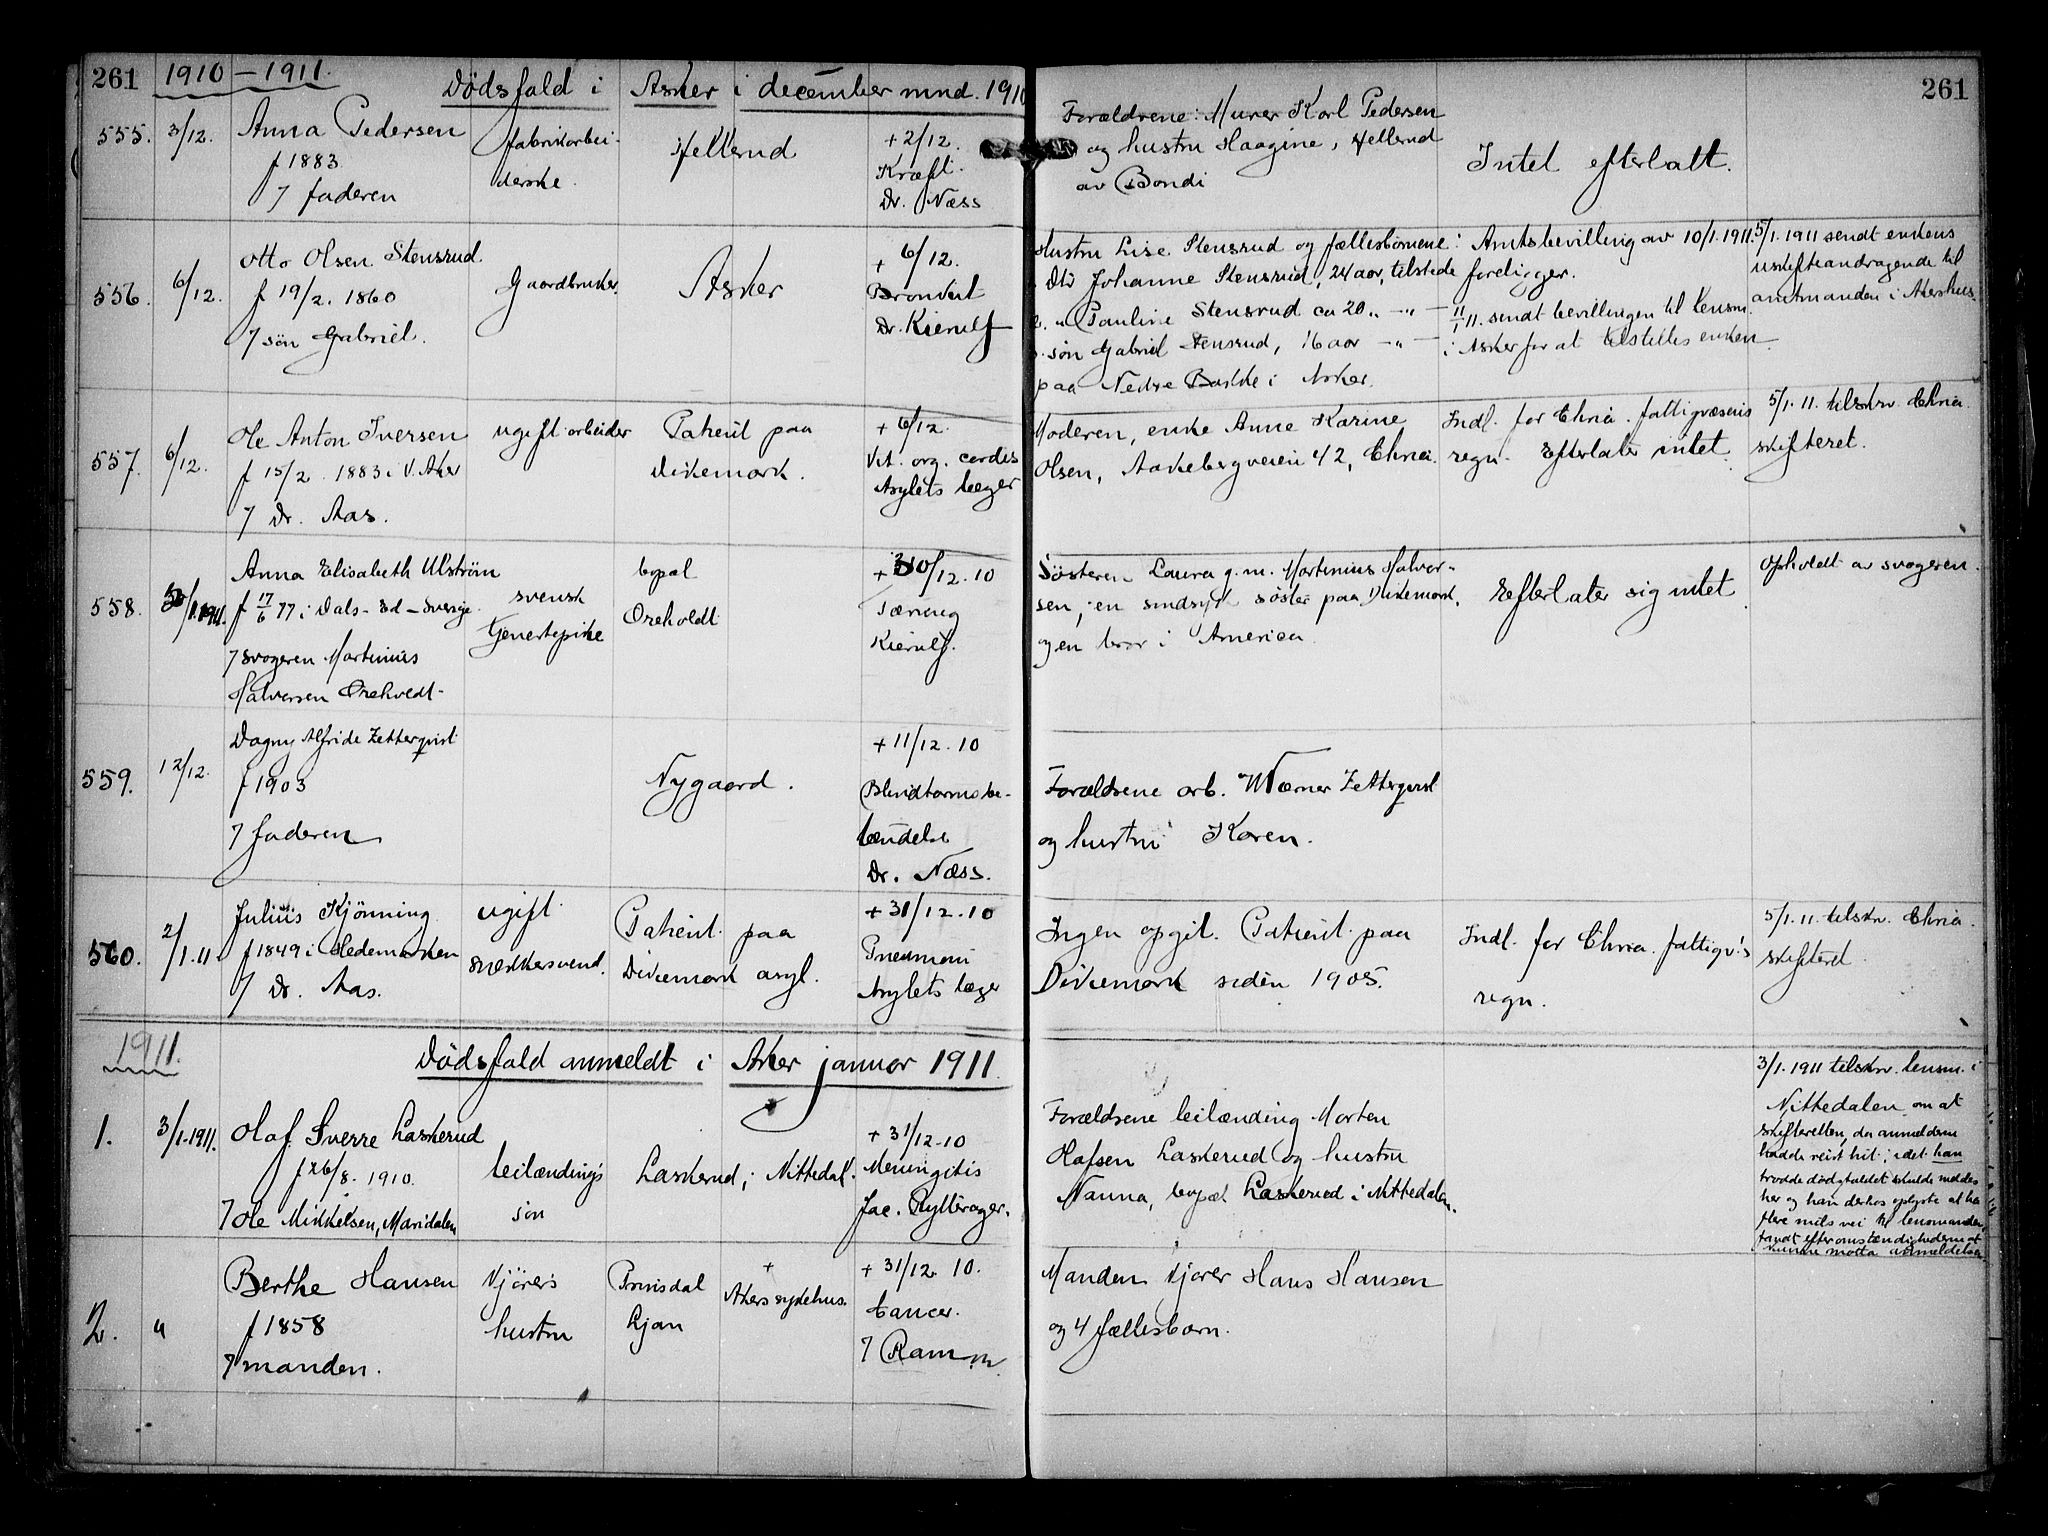 261 1910–1911. Dödsfald i Asker i december mnd. 1910 261
555. 3/12. Anna Pedersen
f 1883
7 faderen
fabrikarbei-
derske.
Hellerud
+ 2/12.
Kræft.
Dr. Næss
Forældrene: Murer Karl Pedersen
og hustru Haagine, Hellerud
av Bondi
Intet efterlatt.
556. 6/12. Otto Olsen Stensrud
f 19/2. 1860
7 sön Gabriel.
Gaardbruker.
Asker
+ 6/12.
Dr. Kierulf
Hustru Lise Stensrud og fællesbörnene:
Johanne Stensrud, 24 aar, tilstede
" Pauline Stensrud ca 20 " –"–
sön Gabriel Stensrud, 16 aar –"–
paa Nedre Bakke i Asker.
Amtsbevilling av 10/1.1911.
foreligger.
11/1 11. sendt bevillingen til lensm.
i Asker for at tilstilles enken.
5/1. 1911 sendt enkens
uskifteandragende til
amtmanden i Akershus.
557. 6/12. Ole Anton Iversen
f 15/2. 1883 i V. Aker
7 Dr. Aas.
ugift arbeider
Patient paa
Dikemark.
+ 6/12.
Vit. org. cordis
Asylets læger
Moderen, enke Anne Karine
Olsen, Aakebergveien 42, Chria.
Indl. for Chria. fattigvæsens
regn. Efterlater intet.
5/1. 11. tilskr. Chria.
skifteret.
558. /1.1911. Anna Elisabeth Ulström
f 17/6 77 i Dals-Ed-Sverige.
7 svogeren Martinius
Halversen Orehvedt-
svensk
tjenestepike
bopal
Oreholdt
+ 30/12.10
Tæring
Kierulf.
Sösteren Laura g.m. Martinius Halver-
sen, en sindsyk söster paa Dikemark,
og en bror i America.
Efterlater sig intet
Opholdt av svogeren.
559. 12/12. Dagny Alfride Zetterqvist
f 1903
7 faderen
Nygaard.
+ 11/12. 10
Blindtarmsbe-
tændelse
Dr. Næss.
Forældrene arb. Werner Zetterqvist
og hustru Karen.
560. 2/1.11. Julius Kjönning
f 1849 i Hedemarken
7 Dr. Aas.
ugift
snedkersvend.
Patient paa
Dikemark asyl.
+ 31/12.10
Pneumoni
Asylets læger
Ingen opgit. Patient paa
Dikemark siden 1905.
Indl. for Chria. fattigv's
regn.
5/1.11. tilskr. Chria.
skifteret.
1911. Dödsfald anmeldt i Aker januar 1911.
1. 3/1.1911. Olaf Sverre Laskerud
f 26/8. 1910.
7 Ole Mikkelsen, Maridalen
leilændings
sön
Laskerud, i Nittedal.
+ 31/12.10
Meningitis
Jac. Rytterager.
Forældrene leilænding Morten
Olafsen Laskerud og hustru
Nanna, bopæl Laskerud i Nittedalen.
3/1. 1911 tilskr. lensm. i
Nittedalen om at
skifteretten, da anmelderen
hadde reist hit, idet han
trodde dödsfaldet skulde meldes
her og han derhos oplyste at ha
flere mils vei til lensmanden,
fandt efter omstændighederne at
kunne motta anmeldelsen
2. " Berthe Hansen
f 1858
7 manden.
Kjörers
hustru
Prinsdal
Ljan
+
Akers sykehus.
+ 31/12. 10.
Cancer.
7 Ramm
Manden kjörer Hans Hansen
og 4 fællesbarn.